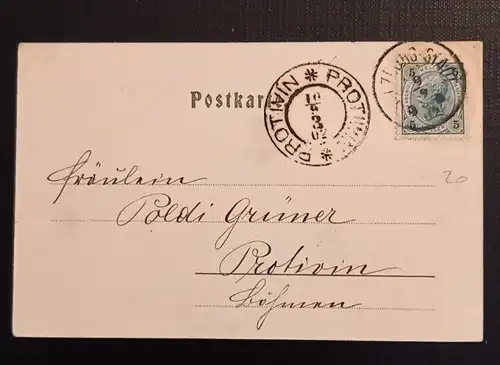 Postkar
PROTIVIN * PROTIVIN *
5 5
20
Fräulein
Poldi Grüner
Protivin
Böhmen